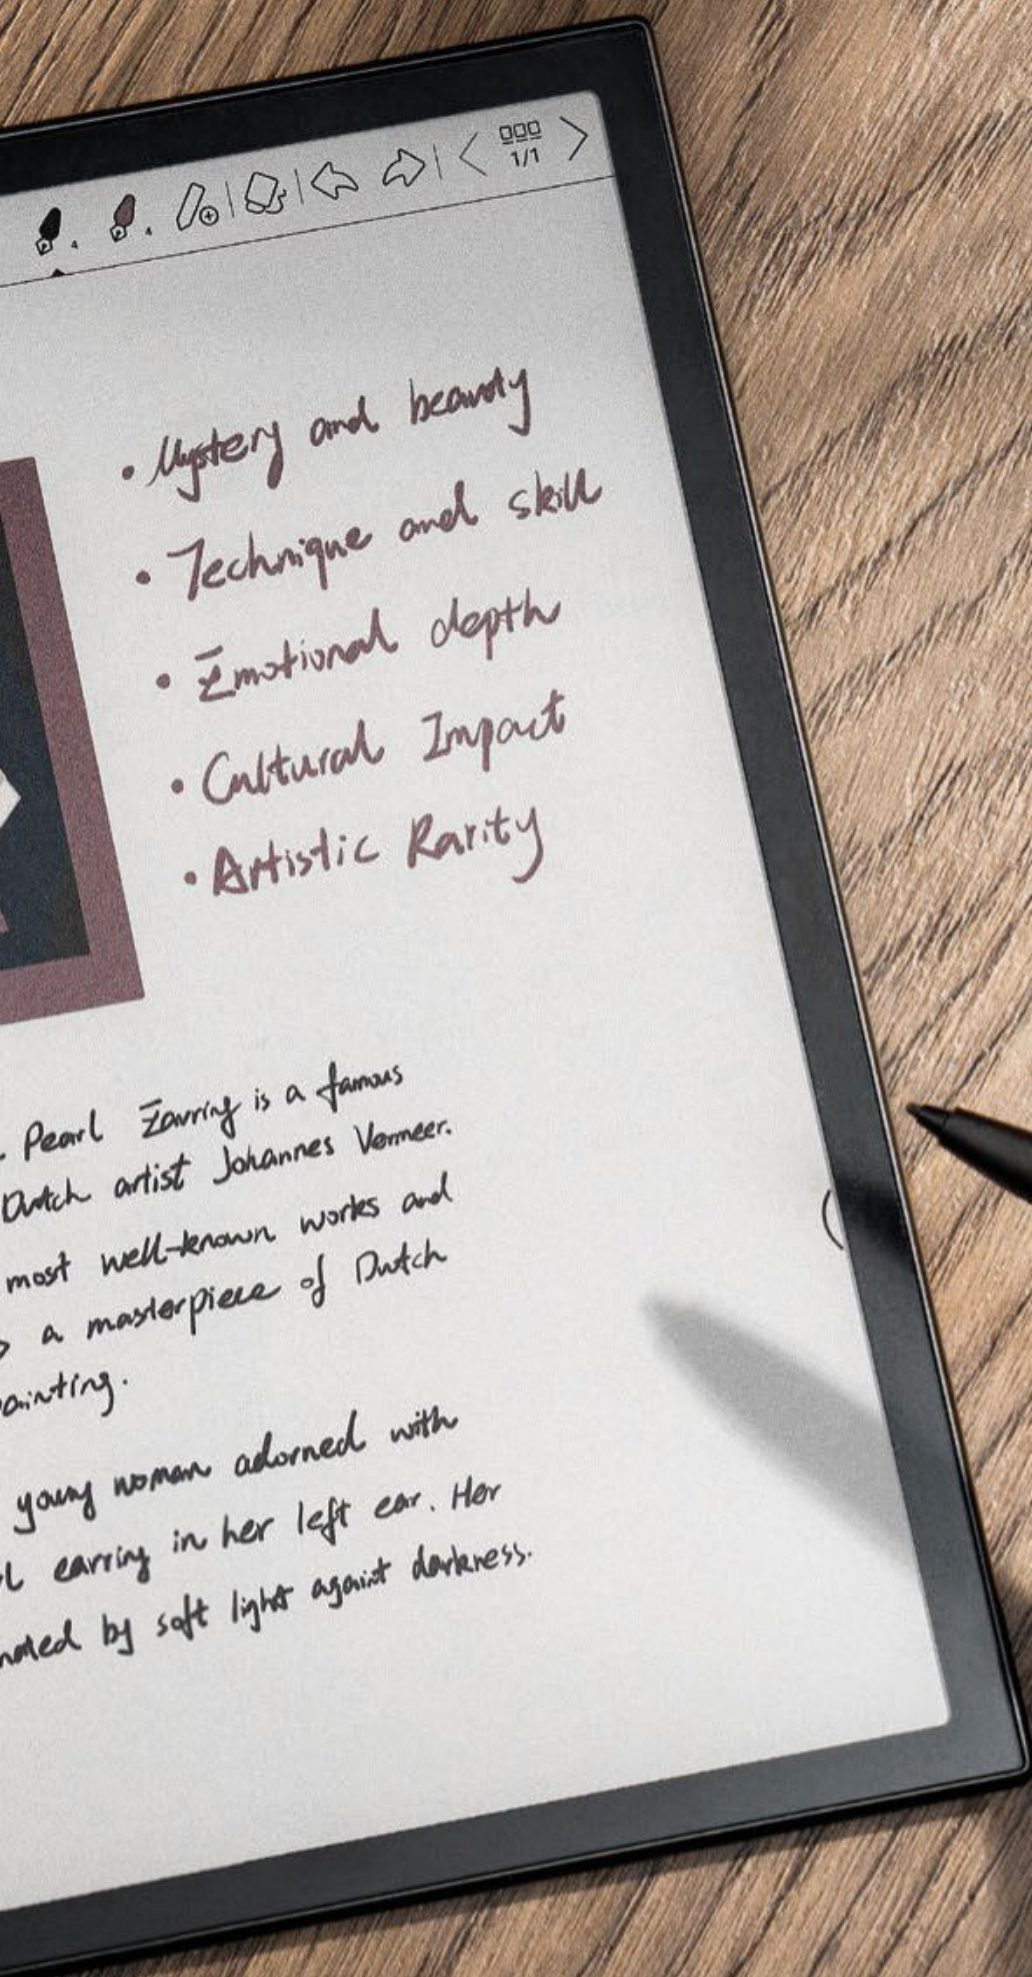 1/1
4 4
• Mystery and beauty
• Technique and skill
• Emotional depth
• Cultural Impact
• Artistic Rarity
Pearl Earring is a famous
Dutch artist Johannes Vermeer.
most well-known works and
a masterpiece of Dutch
ainting.
young woman adorned with
earring in her left ear. Her
by soft light against darkness.